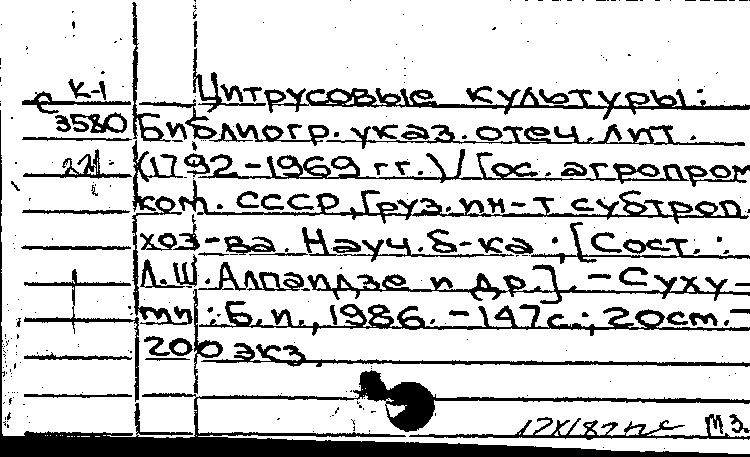 К-1 Цитрусовые культуры:
С 3580 Библиогр. указ. отеч. лит.
(1792-1969 гг.) / Гос. агропром.
ком. СССР, Груз. ин-т субтроп.
хоз-ва. Науч. б-ка ; [Сост. :
Л.Ш. Алпаидзе и др.]. - Суху-
ми : Б.и., 1986. - 147с.; 20см. -
200 экз.
М.З.